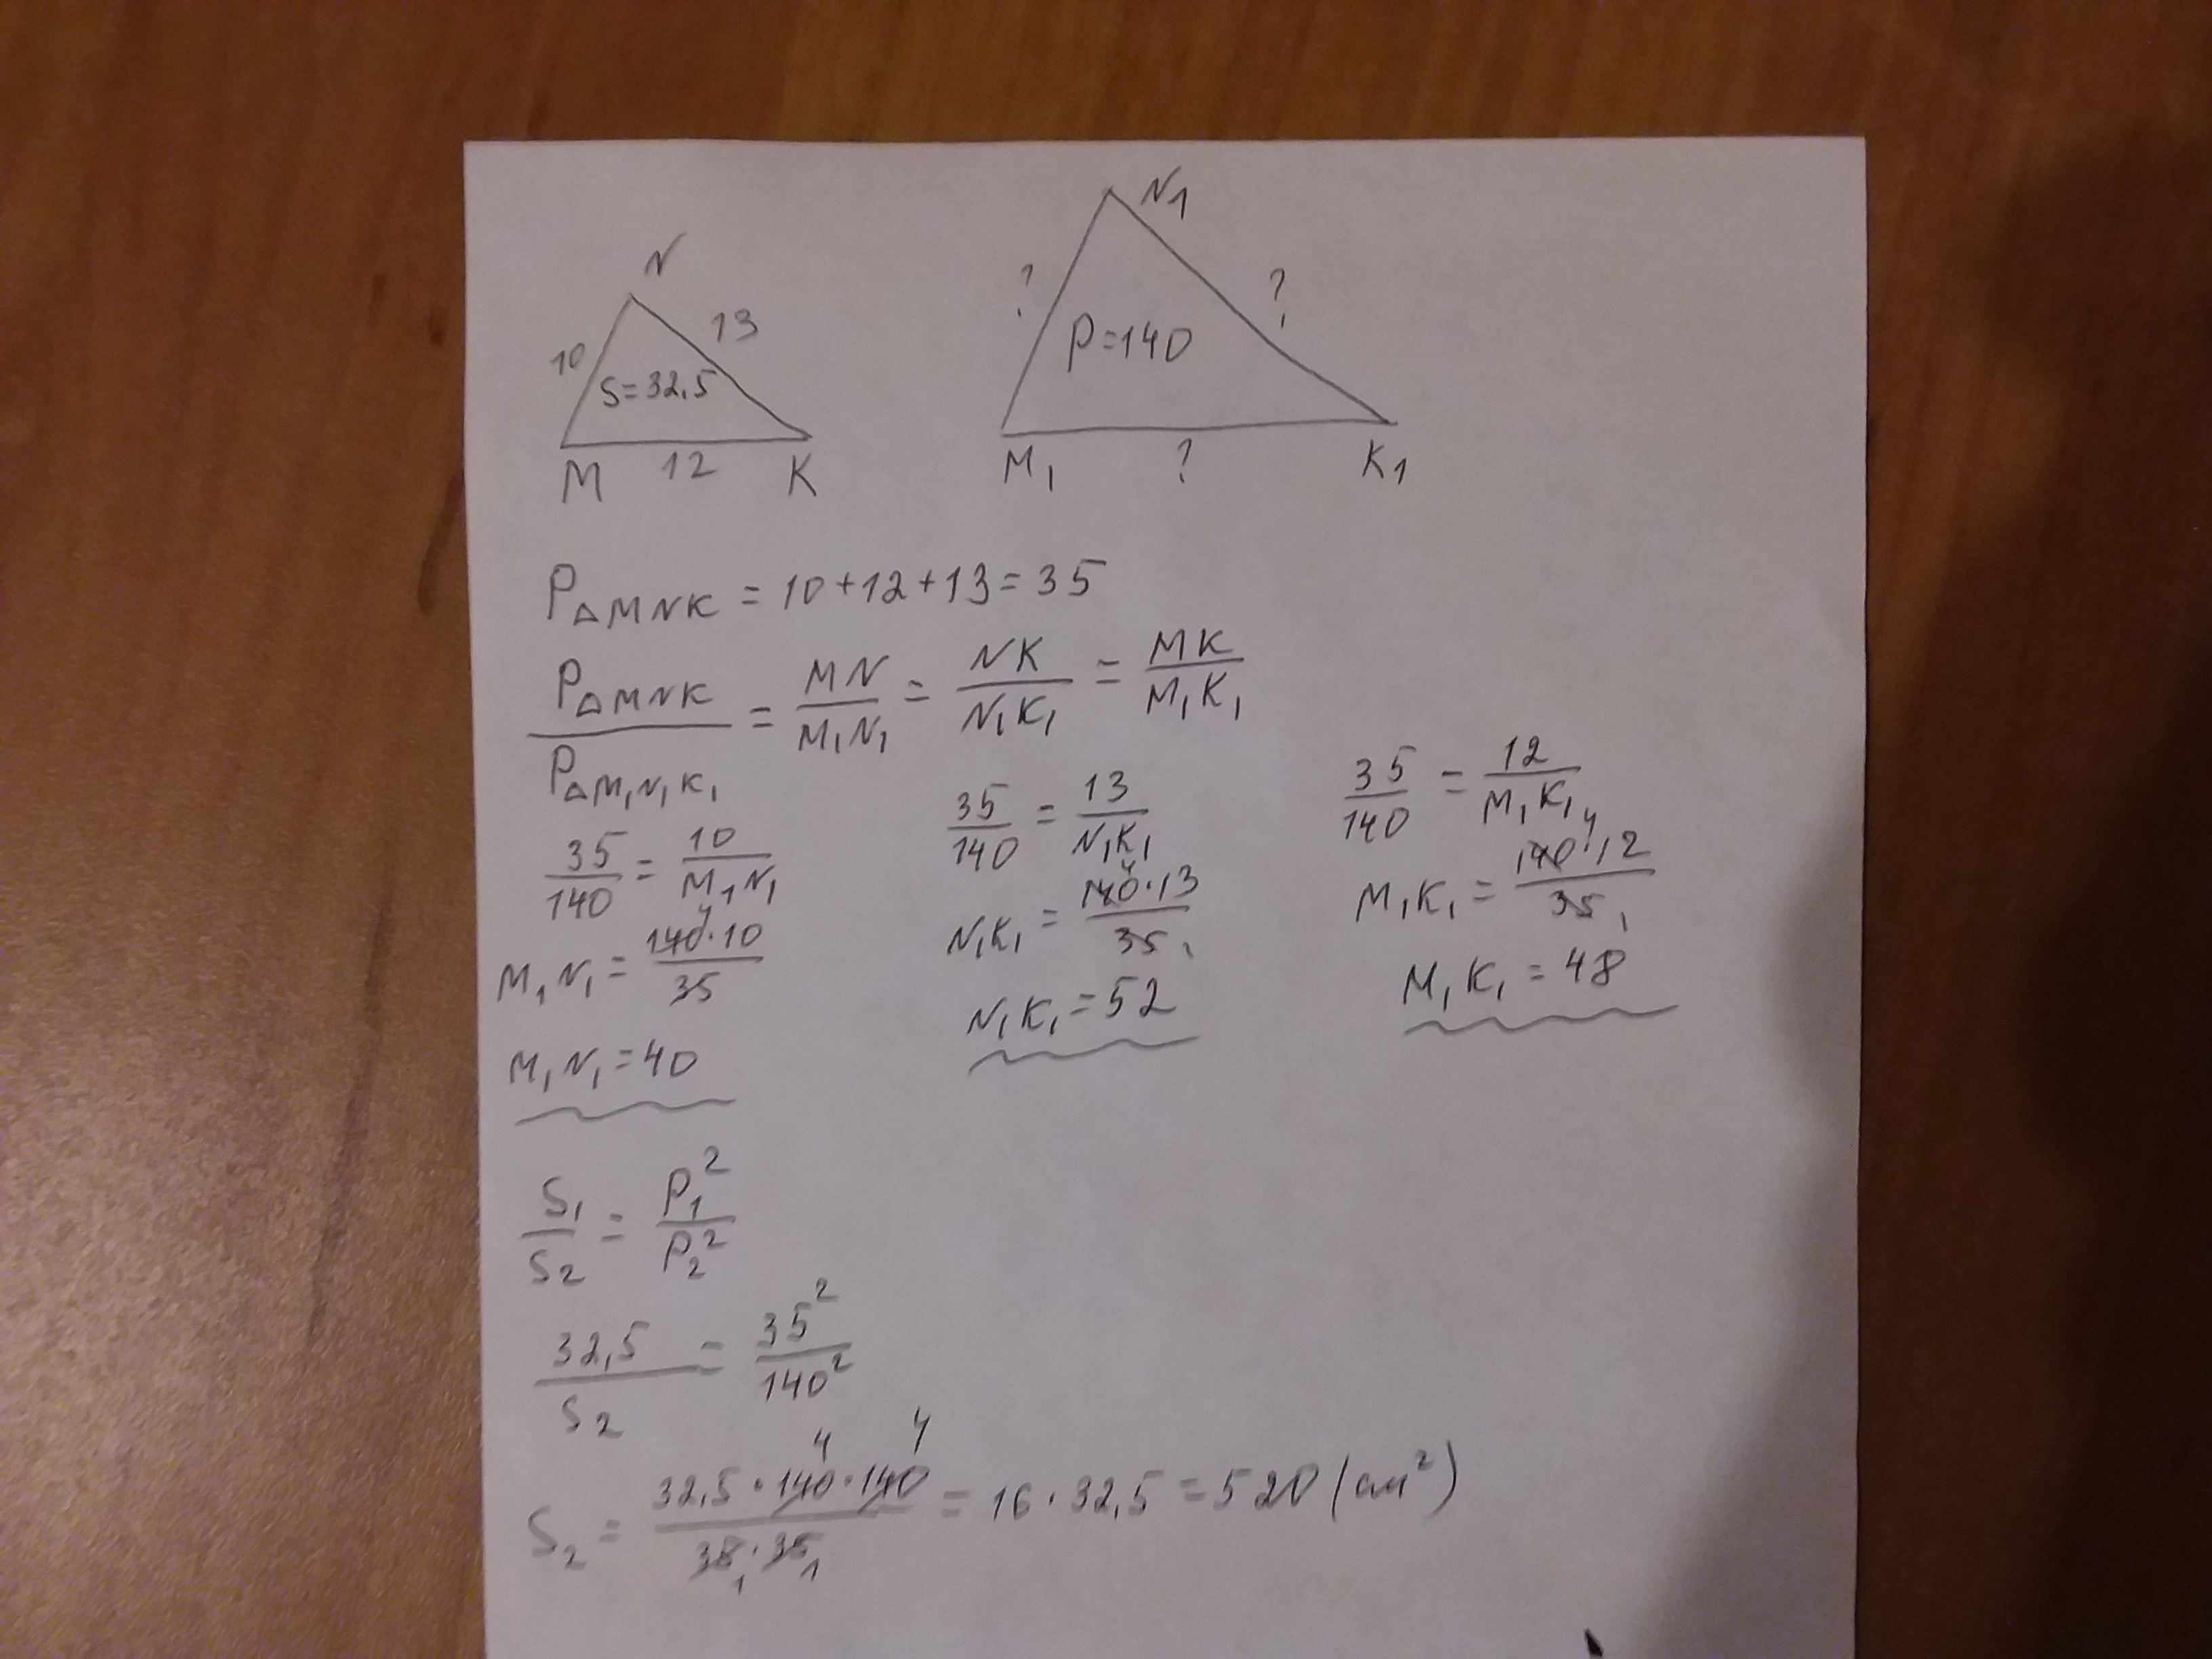 N N₁
10 13 ? ?
S=32,5 P=140
M 12 K M₁ ? K₁
P△MNK = 10+12+13=35
P△MNK/P△M₁N₁K₁ = MN/M₁N₁ = NK/N₁K₁ = MK/M₁K₁
35/140 = 10/M₁N₁
M₁N₁ = 140·10/35 4
M₁N₁ = 40
35/140 = 13/N₁K₁
N₁K₁ = 140·13/35 4 1
N₁K₁ = 52
35/140 = 12/M₁K₁
M₁K₁ = 140·12/35 4 1
M₁K₁ = 48
S₁/S₂ = P₁²/P₂²
32,5/S₂ = 35²/140²
S₂ = 32,5·140·140/35·35 4 4 1 1 = 16·32,5 = 520 (см²)